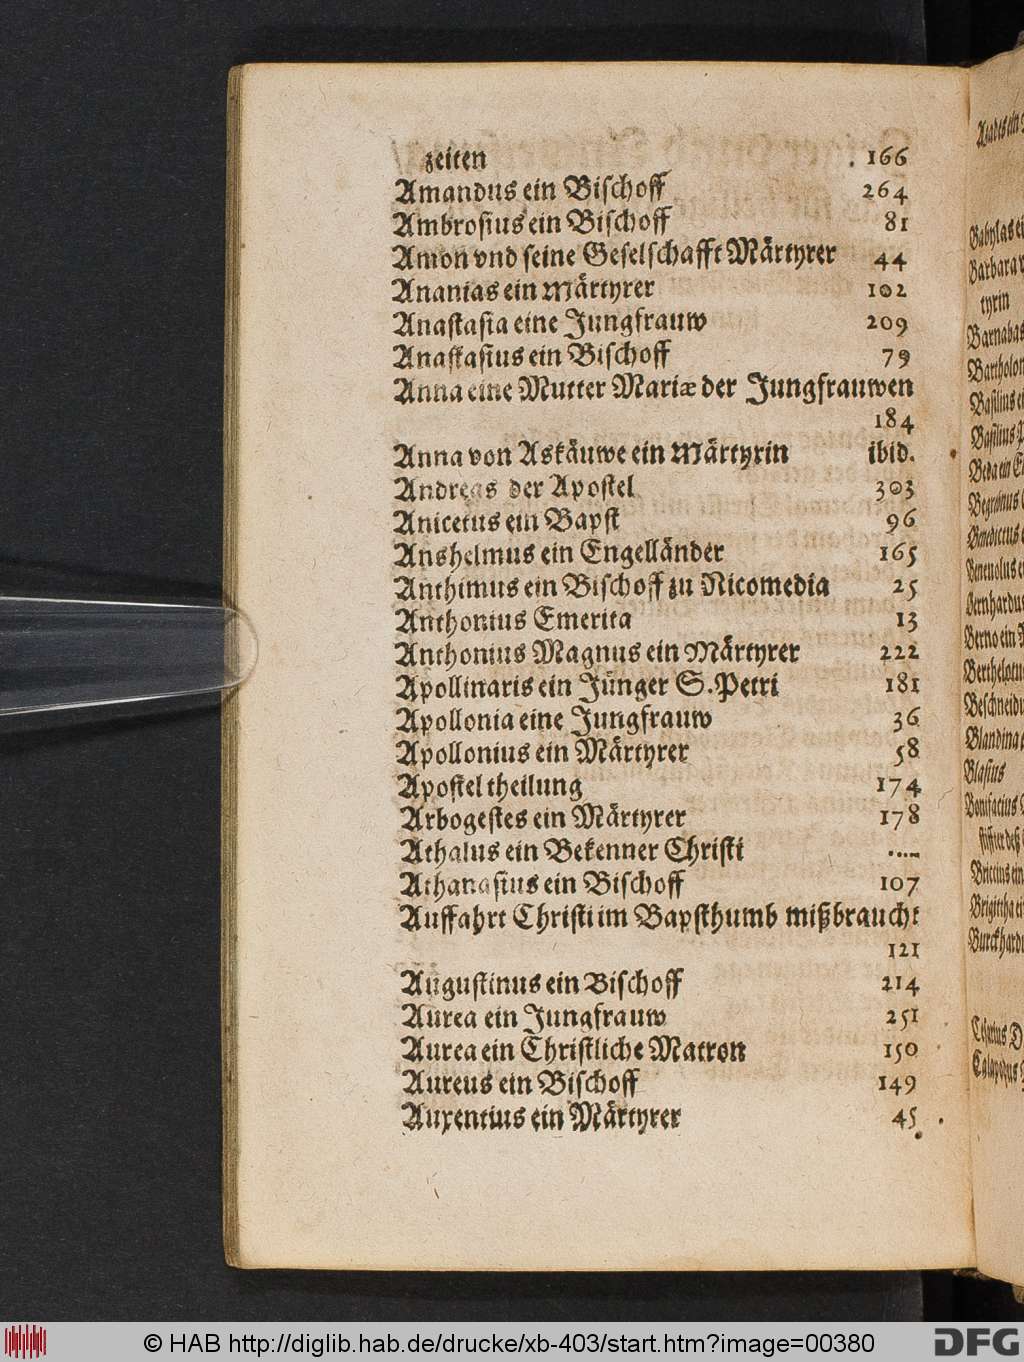 zeiten 166
Amandus ein Bischoff 264
Ambrosius ein Bischoff 81
Amon vnd seine Geselschafft Märtyrer 44
Ananias ein Märtyrer 102
Anastasia eine Jungfrauw 209
Anastasius ein Bischoff 79
Anna eine Mutter Mariæ der Jungfrauwen
184
Anna von Askäuwe ein Märtyrin ibid.
Andreas der Apostel 303
Anicetus ein Bapst 96
Anshelmus ein Engelländer 165
Anthimus ein Bischoff zu Nicomedia 25
Anthonius Emerita 13
Anthonius Magnus ein Märtyrer 222
Apollinaris ein Jünger S. Petri 181
Apollonia eine Jungfrauw 36
Apollonius ein Märtyrer 58
Apostel theilung 174
Arbogestes ein Märtyrer 178
Athalus ein Bekenner Christi .....
Athanasius ein Bischoff 107
Auffahrt Christi im Bapsthumb mißbraucht
121
Augustinus ein Bischoff 214
Aurea ein Jungfrauw 251
Aurea ein Christliche Matron 150
Aureus ein Bischoff 149
Auxentius ein Märtyrer 45
Babylas
Barbara
tyrin
Barnabas
Basilius
Basilius
Beda ein
Blasius
© HAB http://diglib.hab.de/drucke/xb-403/start.htm?image=00380
DFG